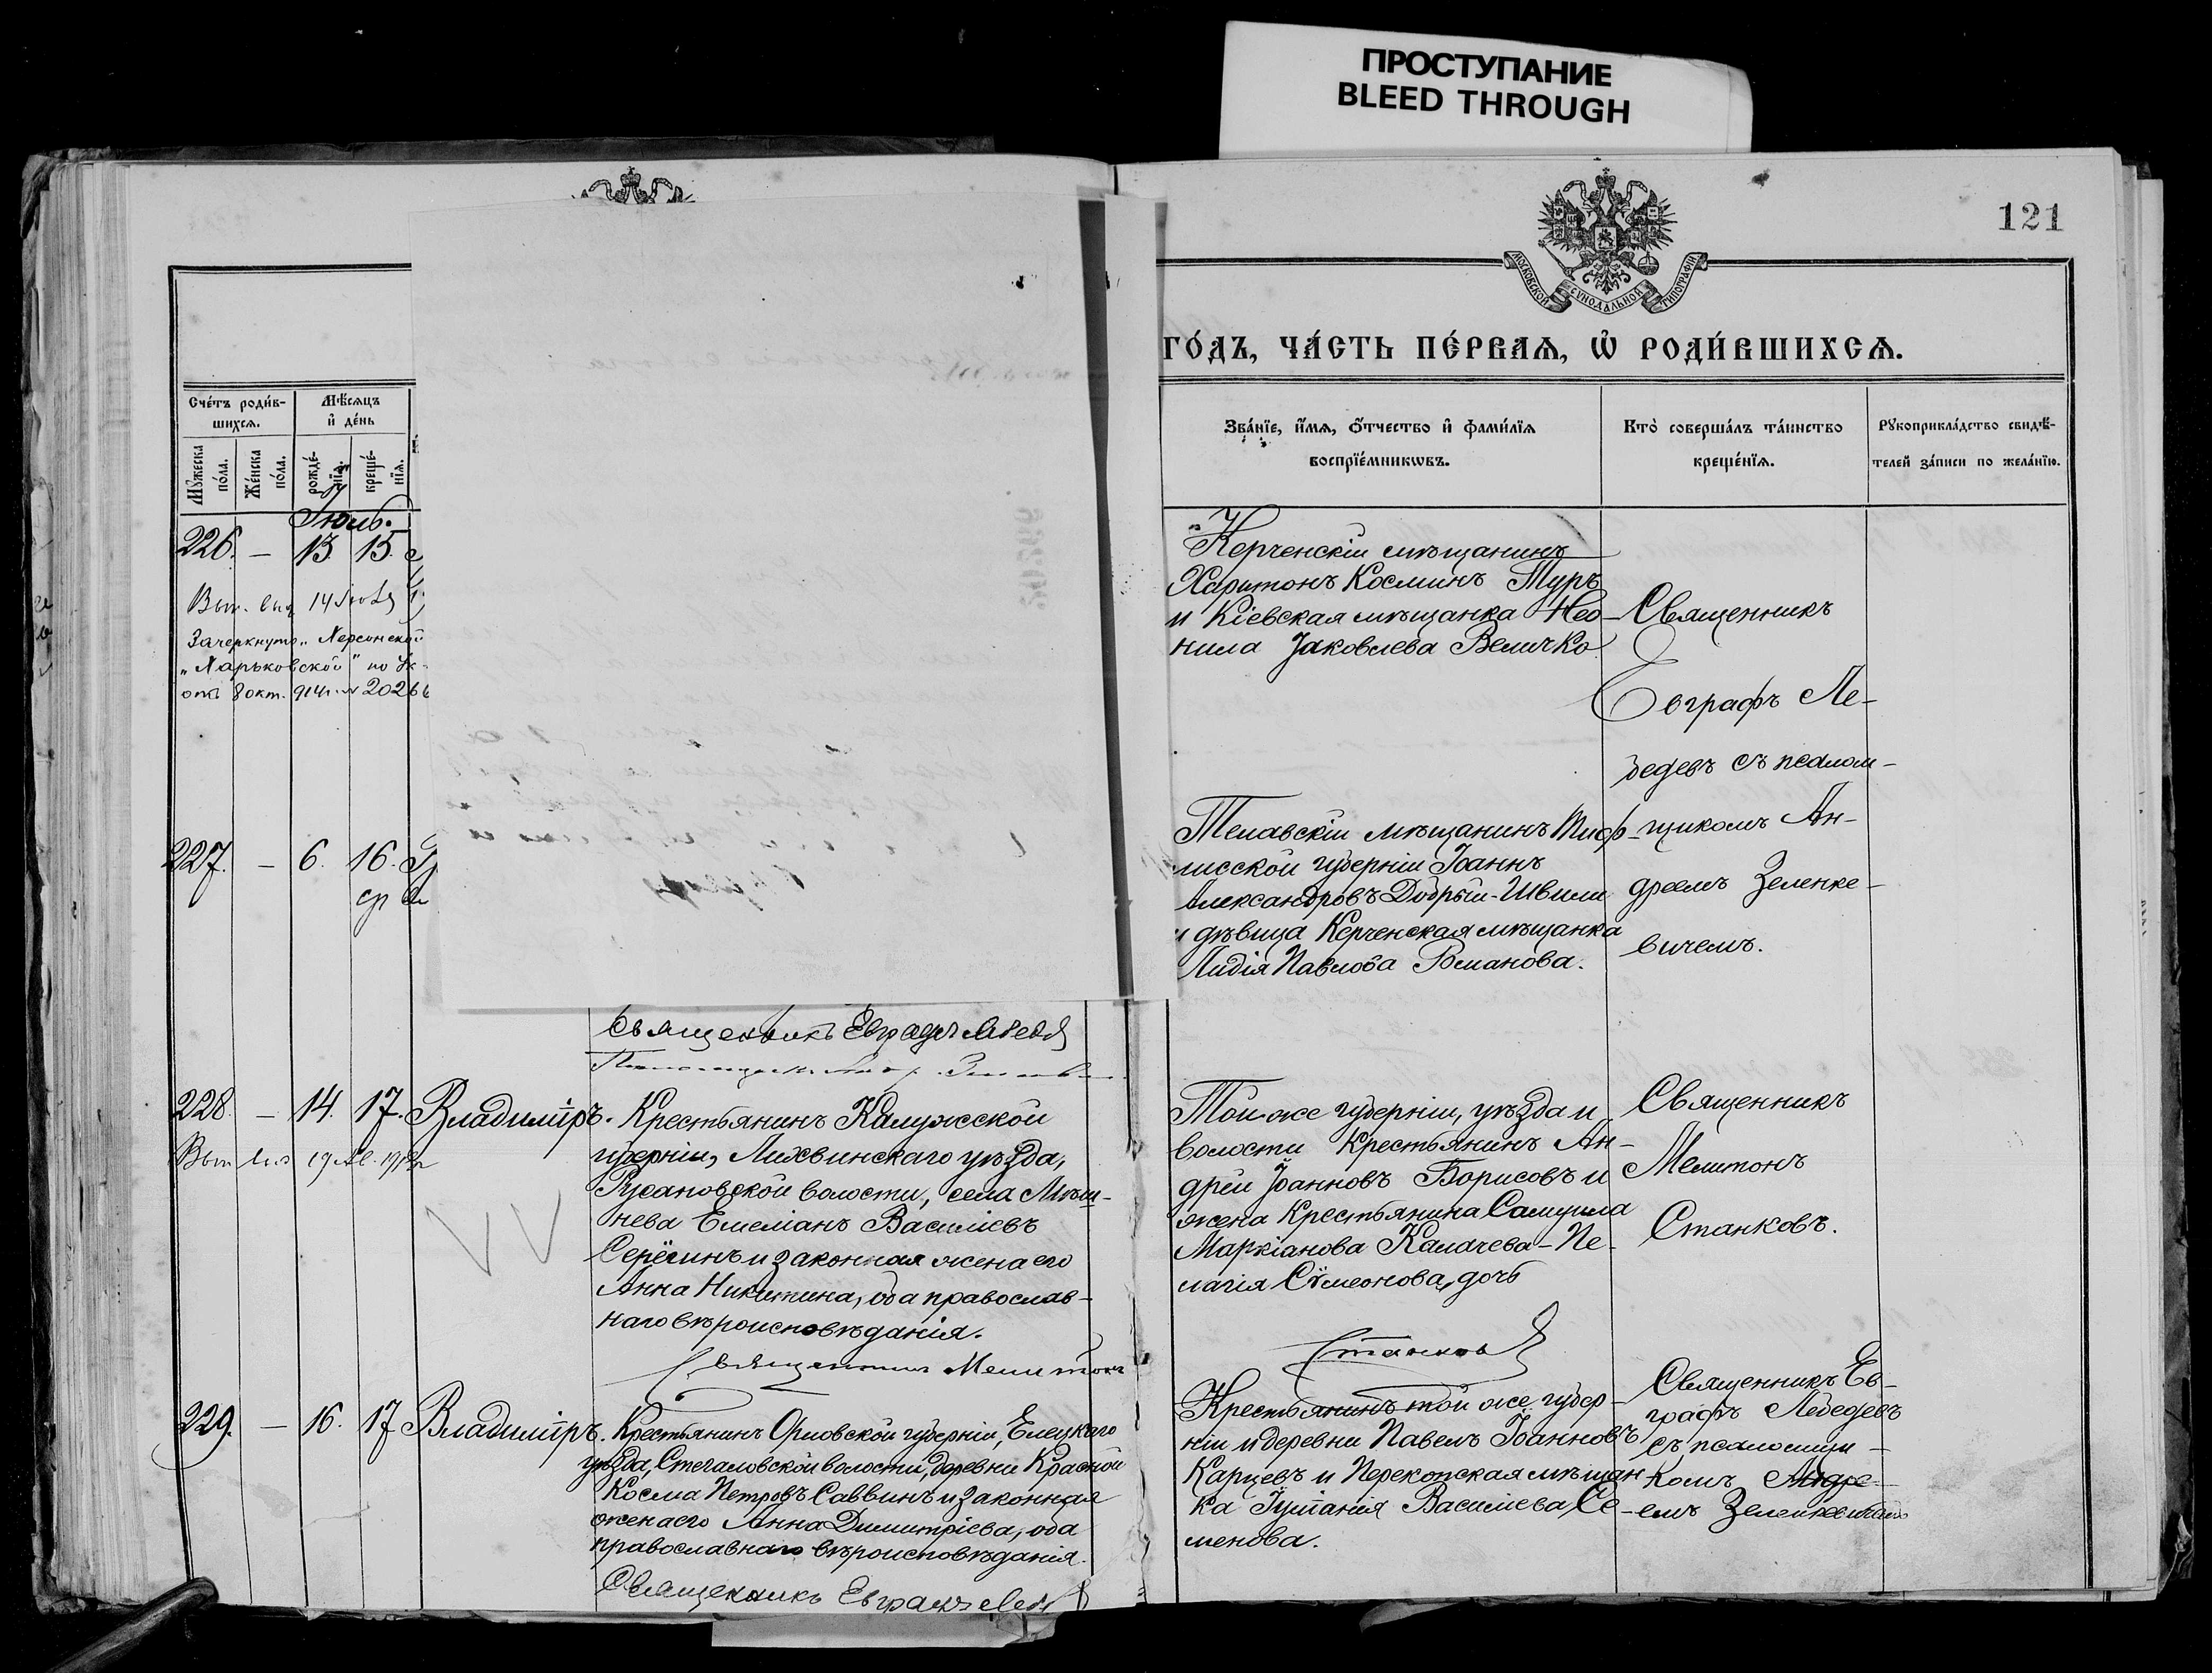 ПРОСТУПАНИЕ
BLEED THROUGH
121
МОСКОВСКОЙ СѴНОДАЛЬНОЙ ТИПОГРАФІИ
ГО́ДЪ, ЧА́СТЬ ПЕ́РВАѦ, Ѡ҆ РОДИ́ВШИХСѦ.
Сче́тъ роди́в-
шихсѧ.
Мѣ́сѧцъ
и҆ де́нь
Мꙋ́жеска
по́ла.
Же́нска
по́ла.
рожде́-
нїѧ.
креще́-
нїѧ.
Зва́нїе, и҆́мѧ, ѻ҆́тчество и҆ фами́лїѧ
воспрїе́мникѡвъ.
Кто̀ соверша́лъ та́инство
креще́нїѧ.
Рꙋкоприкла́дство свидѣ́-
телей за́писи по жела́нїю.
Іюль.
226. — 13. 15.
Вып.
Зачеркнуто „Херсонской
„Харьковской" по ук-
отъ 8 окт. 914 г. № 20266
Керченскій мѣщанинъ
Харитонъ Косминъ Туръ
и Кіевская мѣщанка Нео-
нила Іаковлева Величко.
Священникъ
Евграфъ Ле-
бедевъ съ псалом-
щикомъ Ан-
дреемъ Зеленке-
вичемъ.
227. — 6. 16.
Телавскій мѣщанинъ Тиф-
лисской губерніи Іоаннъ
Александровъ Добрый-Швили
и дѣвица Керченская мѣщанка
Лидія Павлова Романова.
Священникъ Евграфъ Лебед
228. — 14. 17. Владиміръ. Крестьянинъ Калужской
губерніи, Лихвинскаго уѣзда,
Русановской волости, села Мѣш-
нева Емеліанъ Василіевъ
Серёгинъ и законная жена его
Анна Никитина, оба православ-
наго вѣроисповѣданія.
Священникъ Мелитонъ
Станковъ
Той же губерніи, уѣзда и
волости крестьянинъ Ан-
дрей Іоанновъ Борисовъ и
жена крестьянина Самуила
Маркіанова Калачева-Пе-
лагія Сѵмеонова, дочь
Священникъ
Мелитонъ
Станковъ.
229. — 16. 17 Владиміръ. Крестьянинъ Орловской губерніи, Елецкаго
уѣзда, Стегаловской волости, деревни Красной
Косма Петровъ Саввинъ и законная
жена его Анна Димитріева, оба
православнаго вѣроисповѣданія.
Священникъ Евграфъ Лебед
Крестьянинъ той же губер-
ніи и деревни Павелъ Іоанновъ
Карцевъ и Перекопская мѣщан-
ка Іуліанія Василіева Се-
менова.
Священникъ Ев-
графъ Лебедевъ
съ псаломщи-
комъ Андре-
емъ Зеленкевичемъ